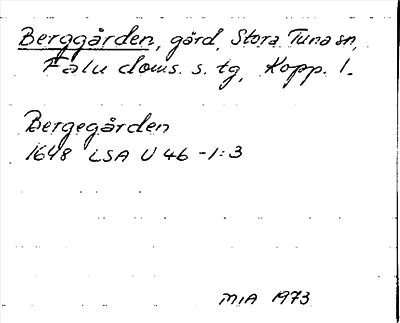 Berggården, gård, Stora Tuna sn,
Falu doms. s. tg, Kopp. l.
Bergegården
1648 LSA U 46 -1:3
MIA 1973